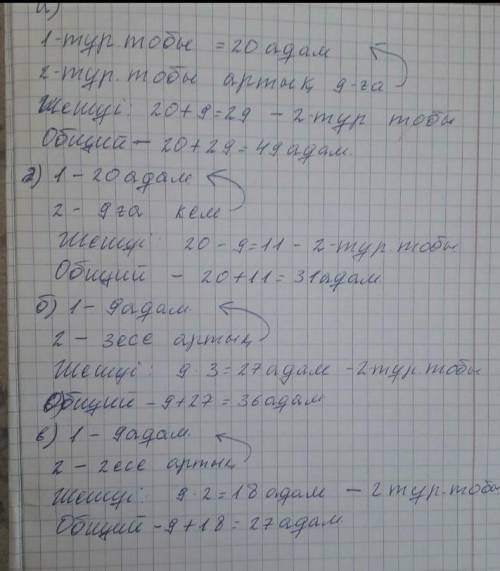 а)
1-тур.тобы = 20 адам
2-тур.тобы артық 9-ға
Шешуі: 20+9=29 - 2-тур тобы
Общий - 20+29=49 адам.
г) 1 - 20 адам
2 - 9ға кем
Шешуі: 20-9=11 - 2-тур.тобы
Общий - 20+11=31 адам
б) 1 - 9 адам
2 - 3 есе артық
Шешуі: 9·3=27 адам - 2 тур.тобы
Общий - 9+27=36 адам
в) 1 - 9 адам.
2 - 2 есе артық
Шешуі: 9·2=18 адам - 2 тур.тобы
Общий - 9+18=27 адам